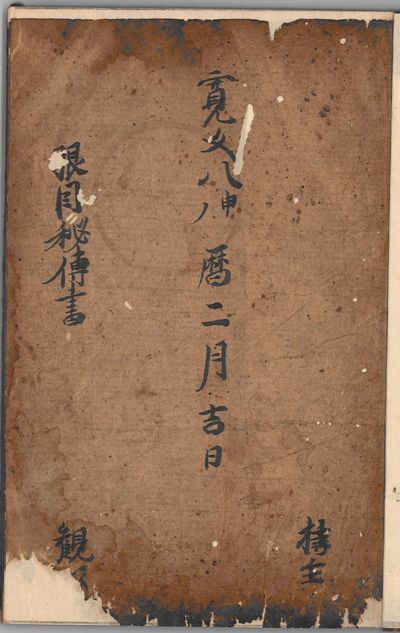 持主
寛文八申ノ暦二月吉日
眼目秘傳書
観